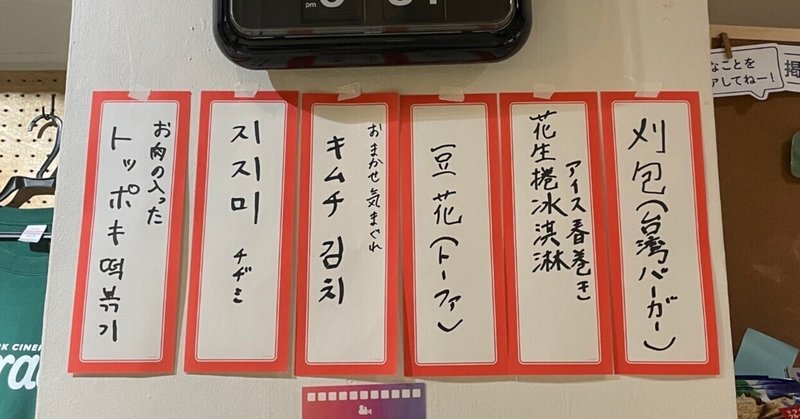 pm
なことを
アしてねー!
掲
刈包(台湾バーガー)
アイス春巻き
花生捲冰淇淋
豆花(トーファ)
おまかせ気まぐれ
キムチ 김치
지지미 チヂミ
お肉の入った
トッポキ 떡볶기
K CINE
ra